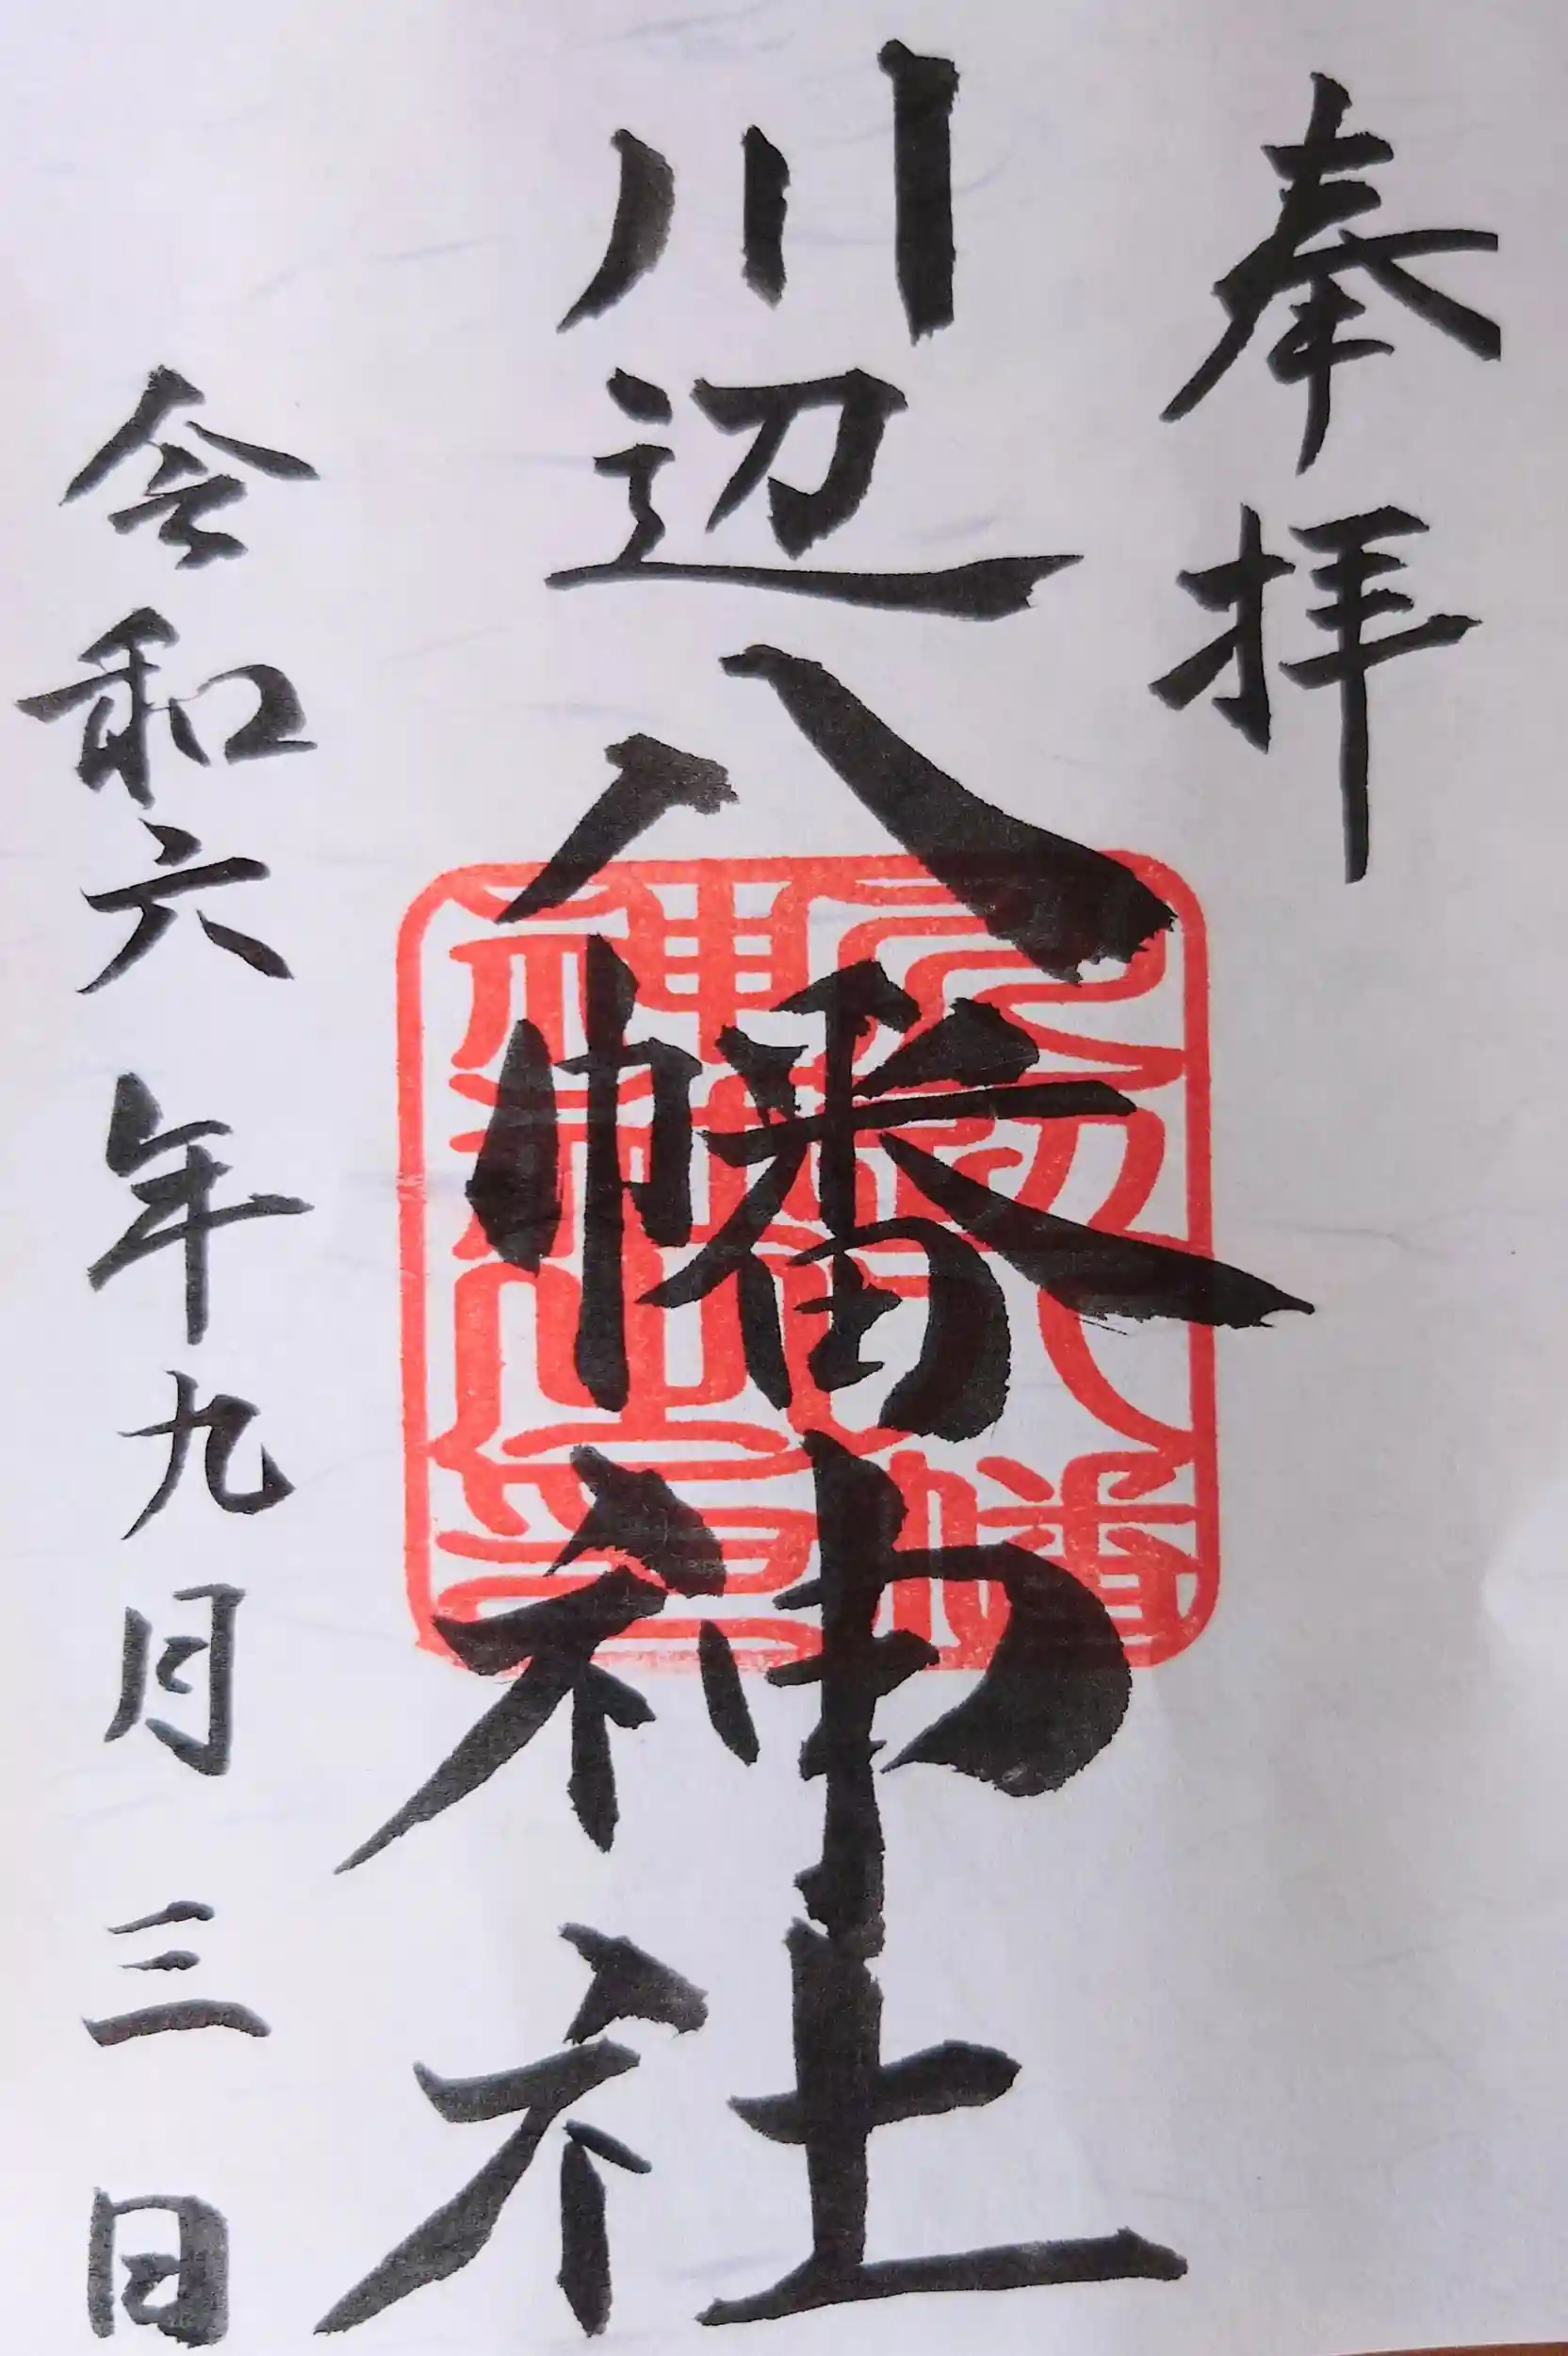 奉拝
川辺八幡神社
令和六年九月三日